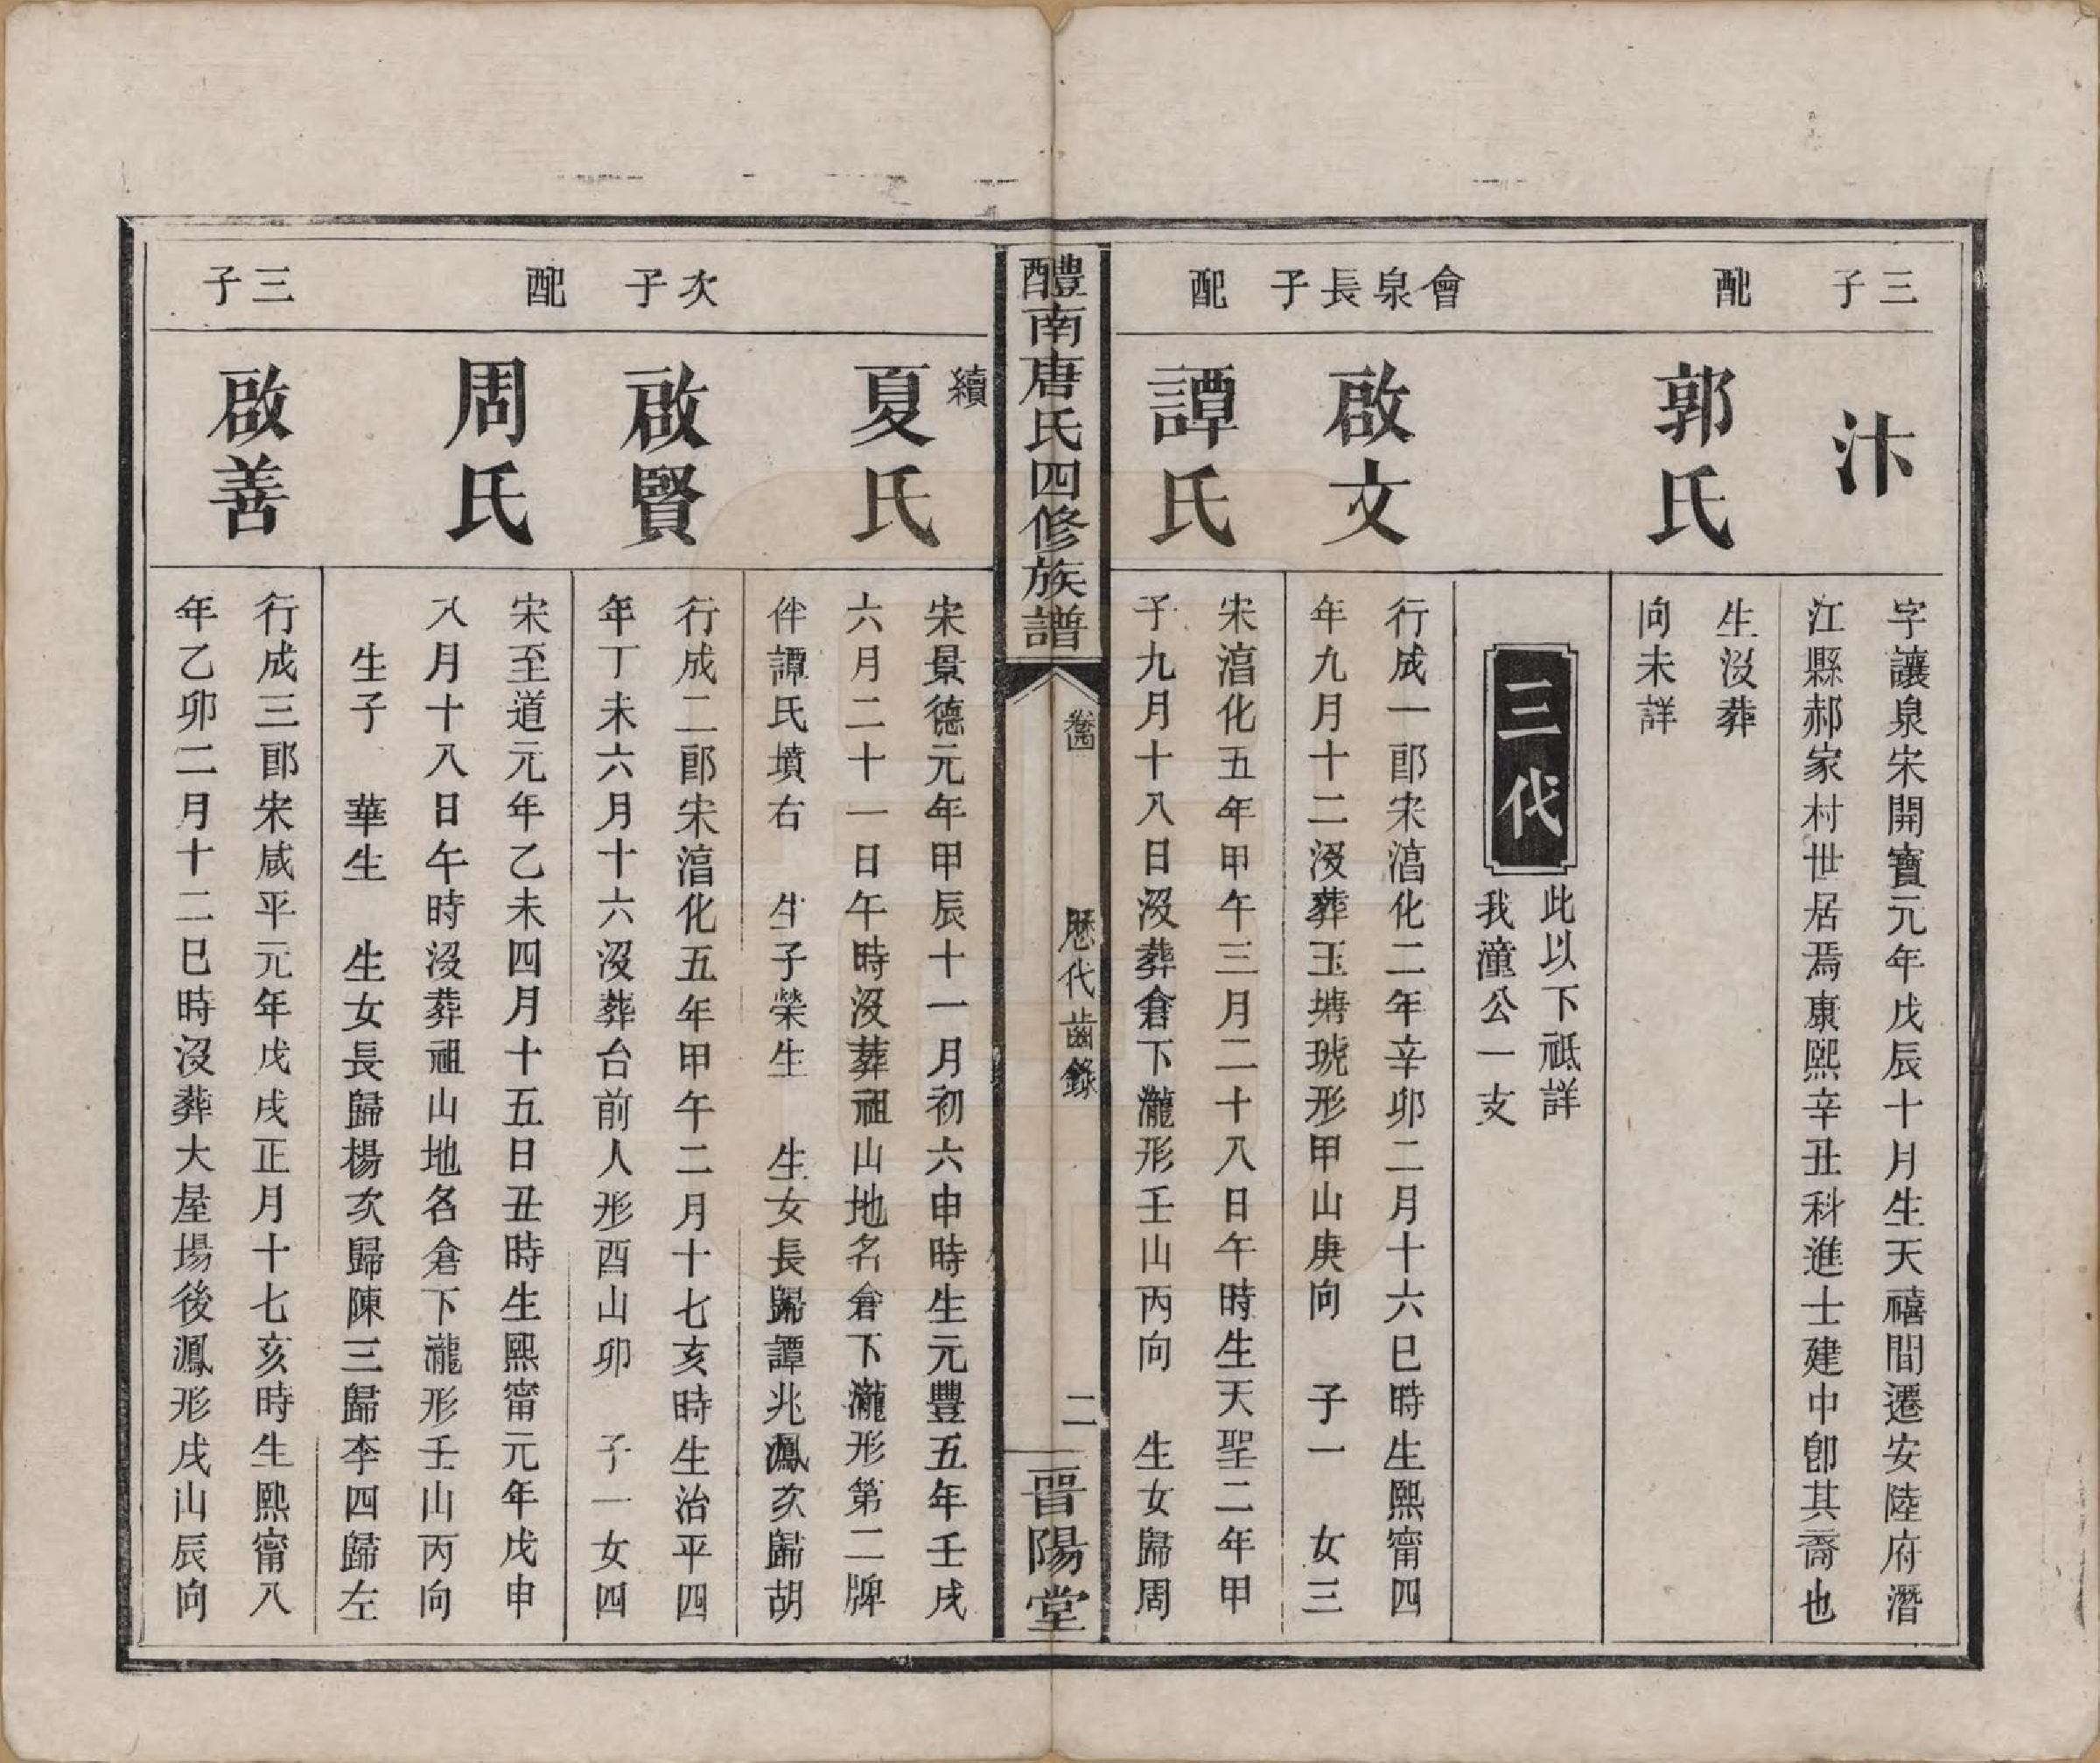 三子
汴
字讓泉宋開寶元年戊辰十月生天禧間遷安陸府潛
江縣郝家村世居焉康熙辛丑科進士建中卽其裔也
配
郭氏
生沒葬
向未詳
三代
此以下祗詳
我潼公一支
會泉長子
啟文
行成一郎宋湻化二年辛卯二月十六巳時生熙甯四
年九月十二沒葬玉塘琥形甲山庚向 子一 女三
配
譚氏
宋湻化五年甲午三月二十八日午時生天聖二年甲
子九月十八日沒葬倉下瀧形壬山丙向 生女歸周
醴南唐氏四修族譜
卷四
歷代齒錄
二
晉陽堂
續
夏氏
宋景德元年甲辰十一月初六申時生元豐五年壬戌
六月二十一日午時沒葬祖山地名倉下瀧形第二牌
伴譚氏墳右 生子榮生 生女長歸譚兆鳳次歸胡
次子
啟賢
行成二郎宋湻化五年甲午二月十七亥時生治平四
年丁未六月十六沒葬台前人形酉山卯 子一女四
配
周氏
宋至道元年乙未四月十五日丑時生熙甯元年戊申
八月十八日午時沒葬祖山地名倉下瀧形壬山丙向
生子 華生 生女長歸楊次歸陳三歸李四歸左
三子
啟善
行成三郎宋咸平元年戊戌正月十七亥時生熙甯八
年乙卯二月十二巳時沒葬大屋場後鳳形戌山辰向